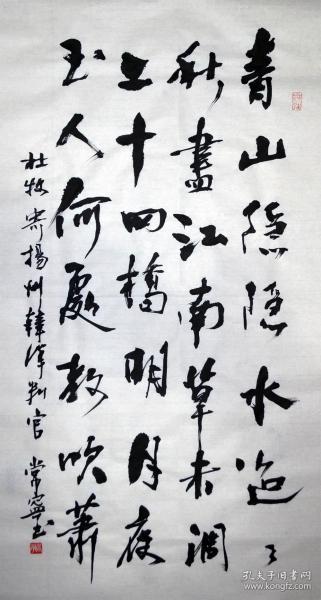 青山隐隐水迢々
秋盡江南草未凋
二十四橋明月夜
玉人何處教吹蕭
杜牧寄揚州韓綽判官 常寧书
孔夫子旧书网